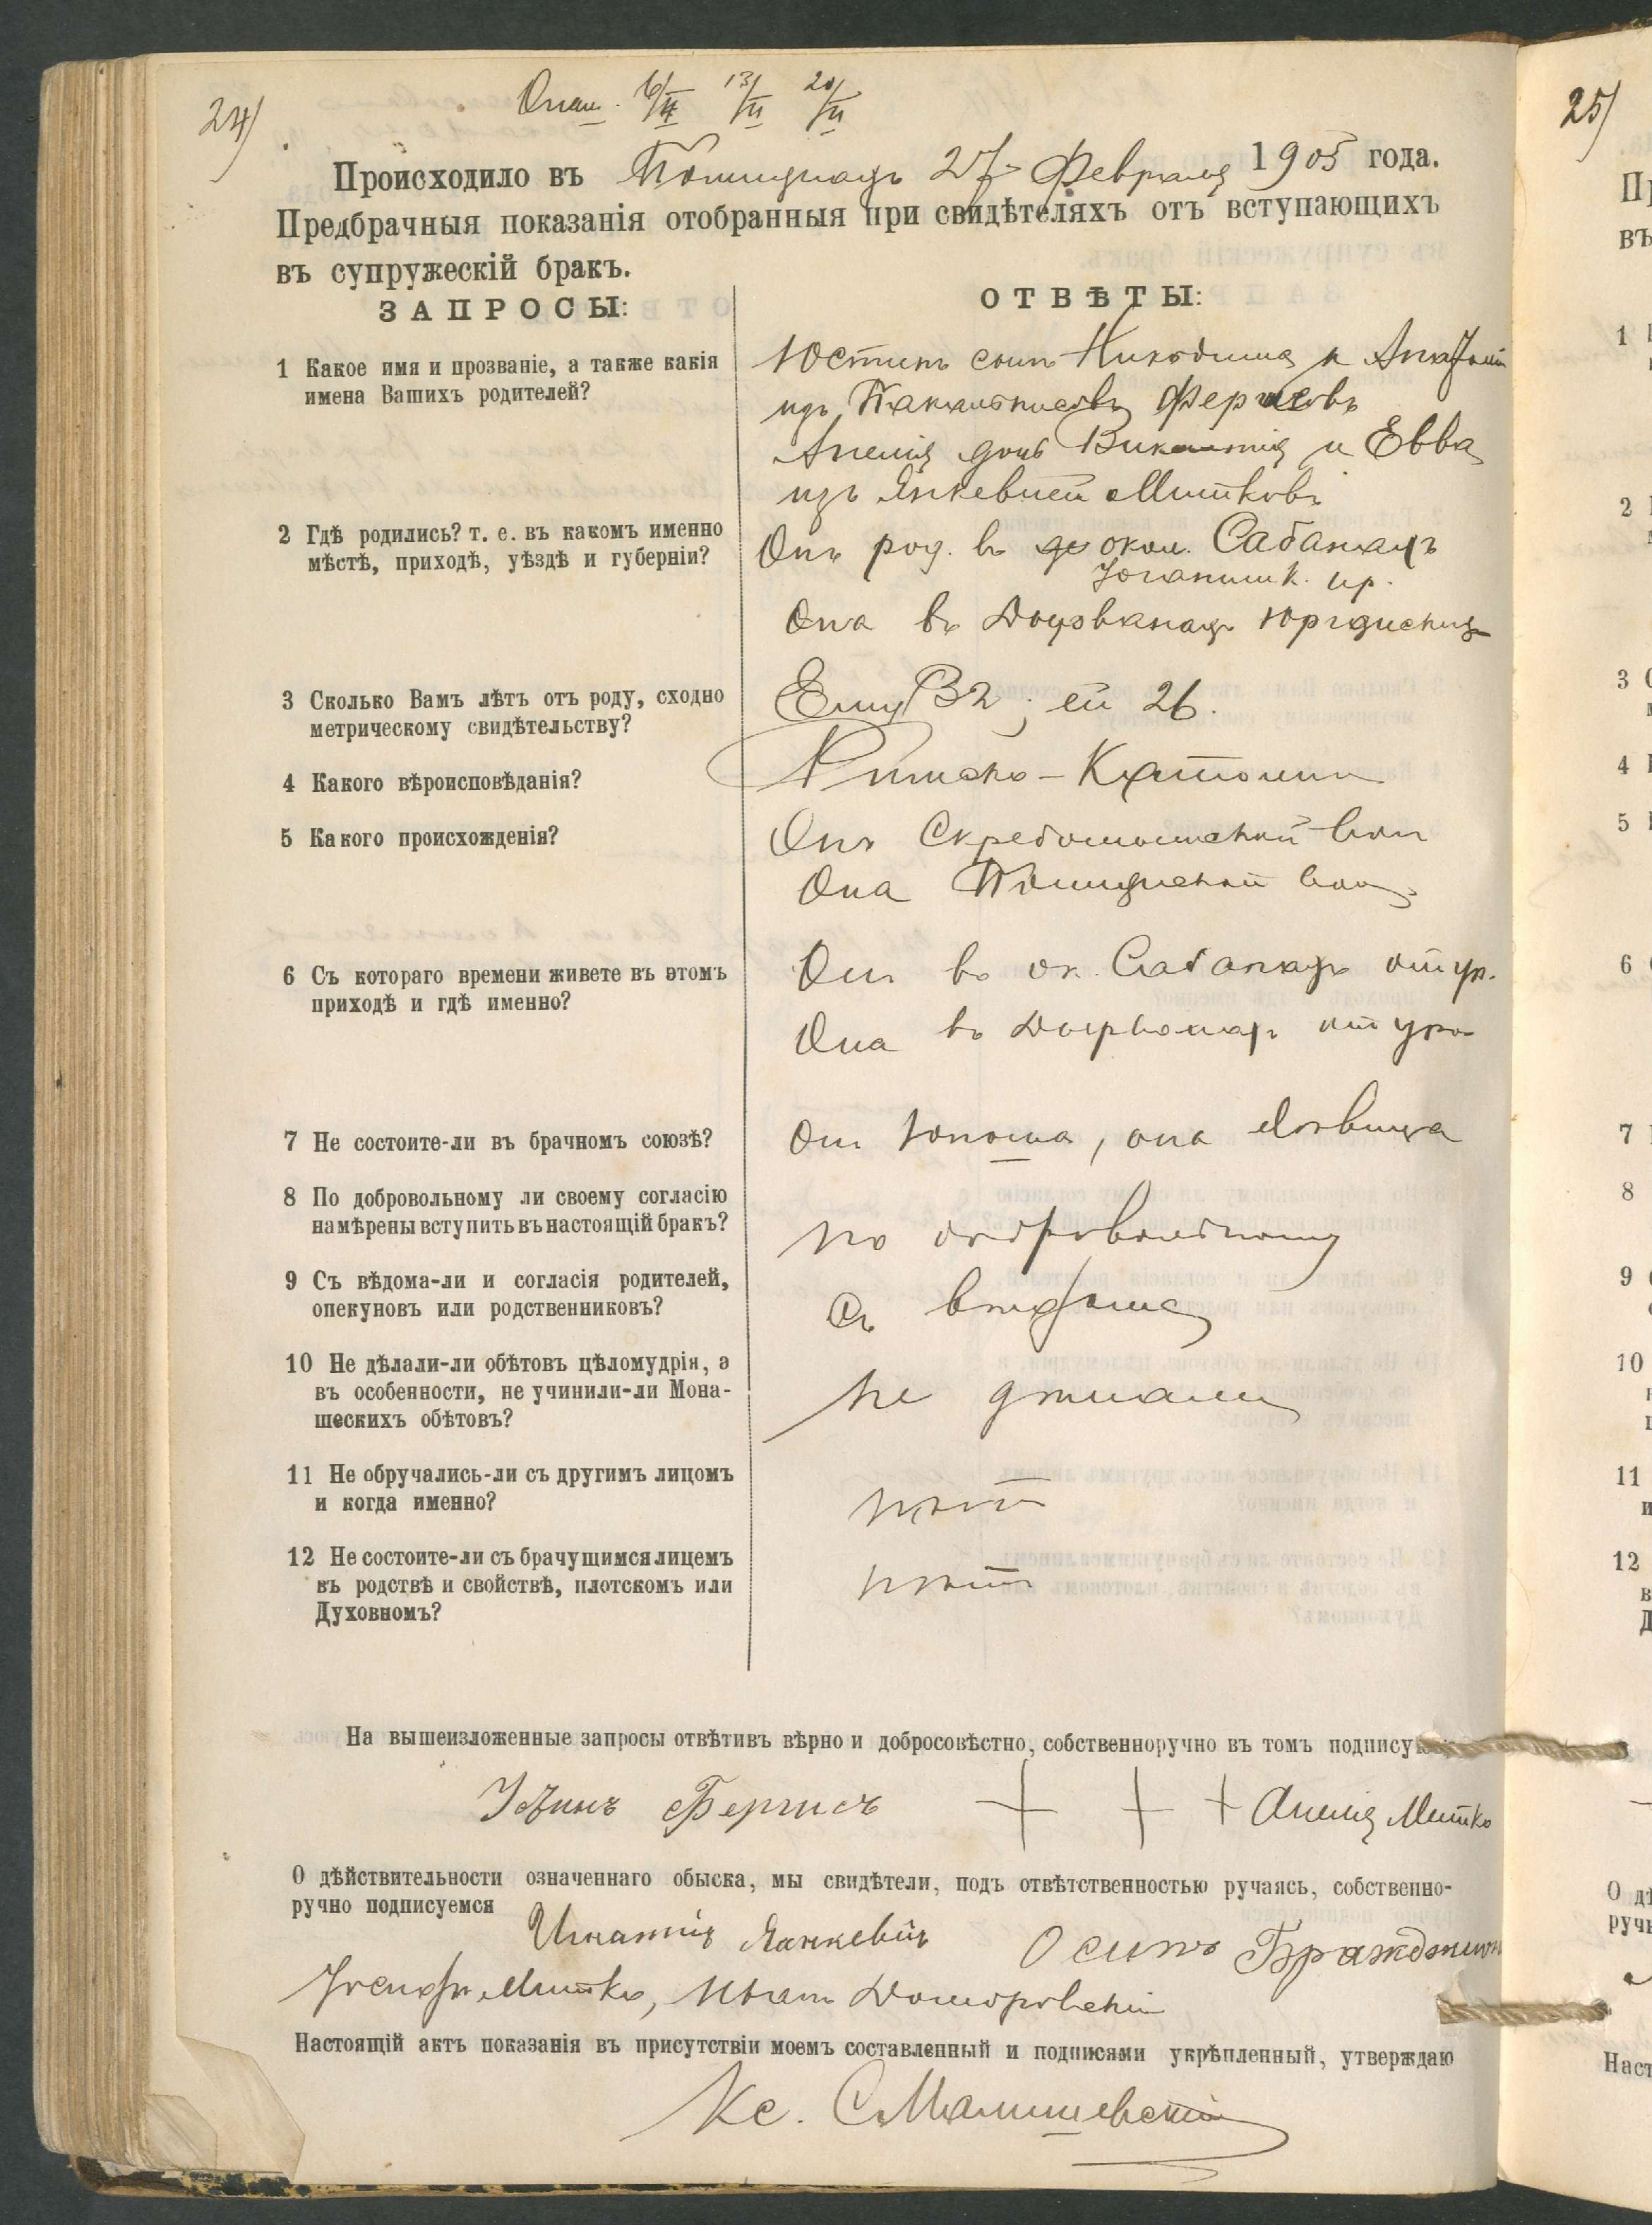 24)
Оглаш. 6/II 13/II 20/II
Происходило въ 27 Февраля 1905 года.
Предбрачныя показанія отобранныя при свидѣтеляхъ отъ вступающихъ
въ супружескій бракъ.
ЗАПРОСЫ:
ОТВѢТЫ:
1 Какое имя и прозваніе, а также какія
имена Вашихъ родителей?
Юстинъ сынъ Никодима и
изъ Фергисовъ
Анелія дочь Викентія и Евва
изъ Янкевичей Митковъ
2 Гдѣ родились? т. е. въ какомъ именно
мѣстѣ, приходѣ, уѣздѣ и губерніи?
Онъ род. въ окол. Сабанахъ
пр.
Она въ
3 Сколько Вамъ лѣтъ отъ роду, сходно
метрическому свидѣтельству?
Ему 32; ей 26.
4 Какого вѣроисповѣданія?
Римско-Католич
5 Какого происхожденія?
Онъ вол
Она вол
6 Съ котораго времени живете въ этомъ
приходѣ и гдѣ именно?
Онъ въ ок. Сабанахъ отъ ур.
Она въ отъ уро
7 Не состоите-ли въ брачномъ союзѣ?
Онъ юноша, она дѣвица
8 По добровольному ли своему согласію
намѣрены вступить въ настоящій бракъ?
по добровольному
9 Съ вѣдома-ли и согласія родителей,
опекуновъ или родственниковъ?
Съ вѣдома
10 Не дѣлали-ли обѣтовъ цѣломудрія, а
въ особенности, не учинили-ли Мона-
шескихъ обѣтовъ?
не дѣлали
11 Не обручались-ли съ другимъ лицомъ
и когда именно?
нѣтъ
12 Не состоите-ли съ брачущимся лицемъ
въ родствѣ и свойствѣ, плотскомъ или
Духовномъ?
нѣтъ
На вышеизложенные запросы отвѣтивъ вѣрно и добросовѣстно, собственноручно въ томъ подпису
Фергисъ + + + Анелія Митко
О дѣйствительности означеннаго обыска, мы свидѣтели, подъ отвѣтственностью ручаясь, собственно-
ручно подписуемся
Игнатій Янкевичъ Осипъ
Іосифъ Митко, Иванъ
Настоящій актъ показанія въ присутствіи моемъ составленный и подписями укрѣпленный, утверждаю
Кс. С Малишевскій
25)
1
2
3
4
5
6
7
8
9
10
11
12